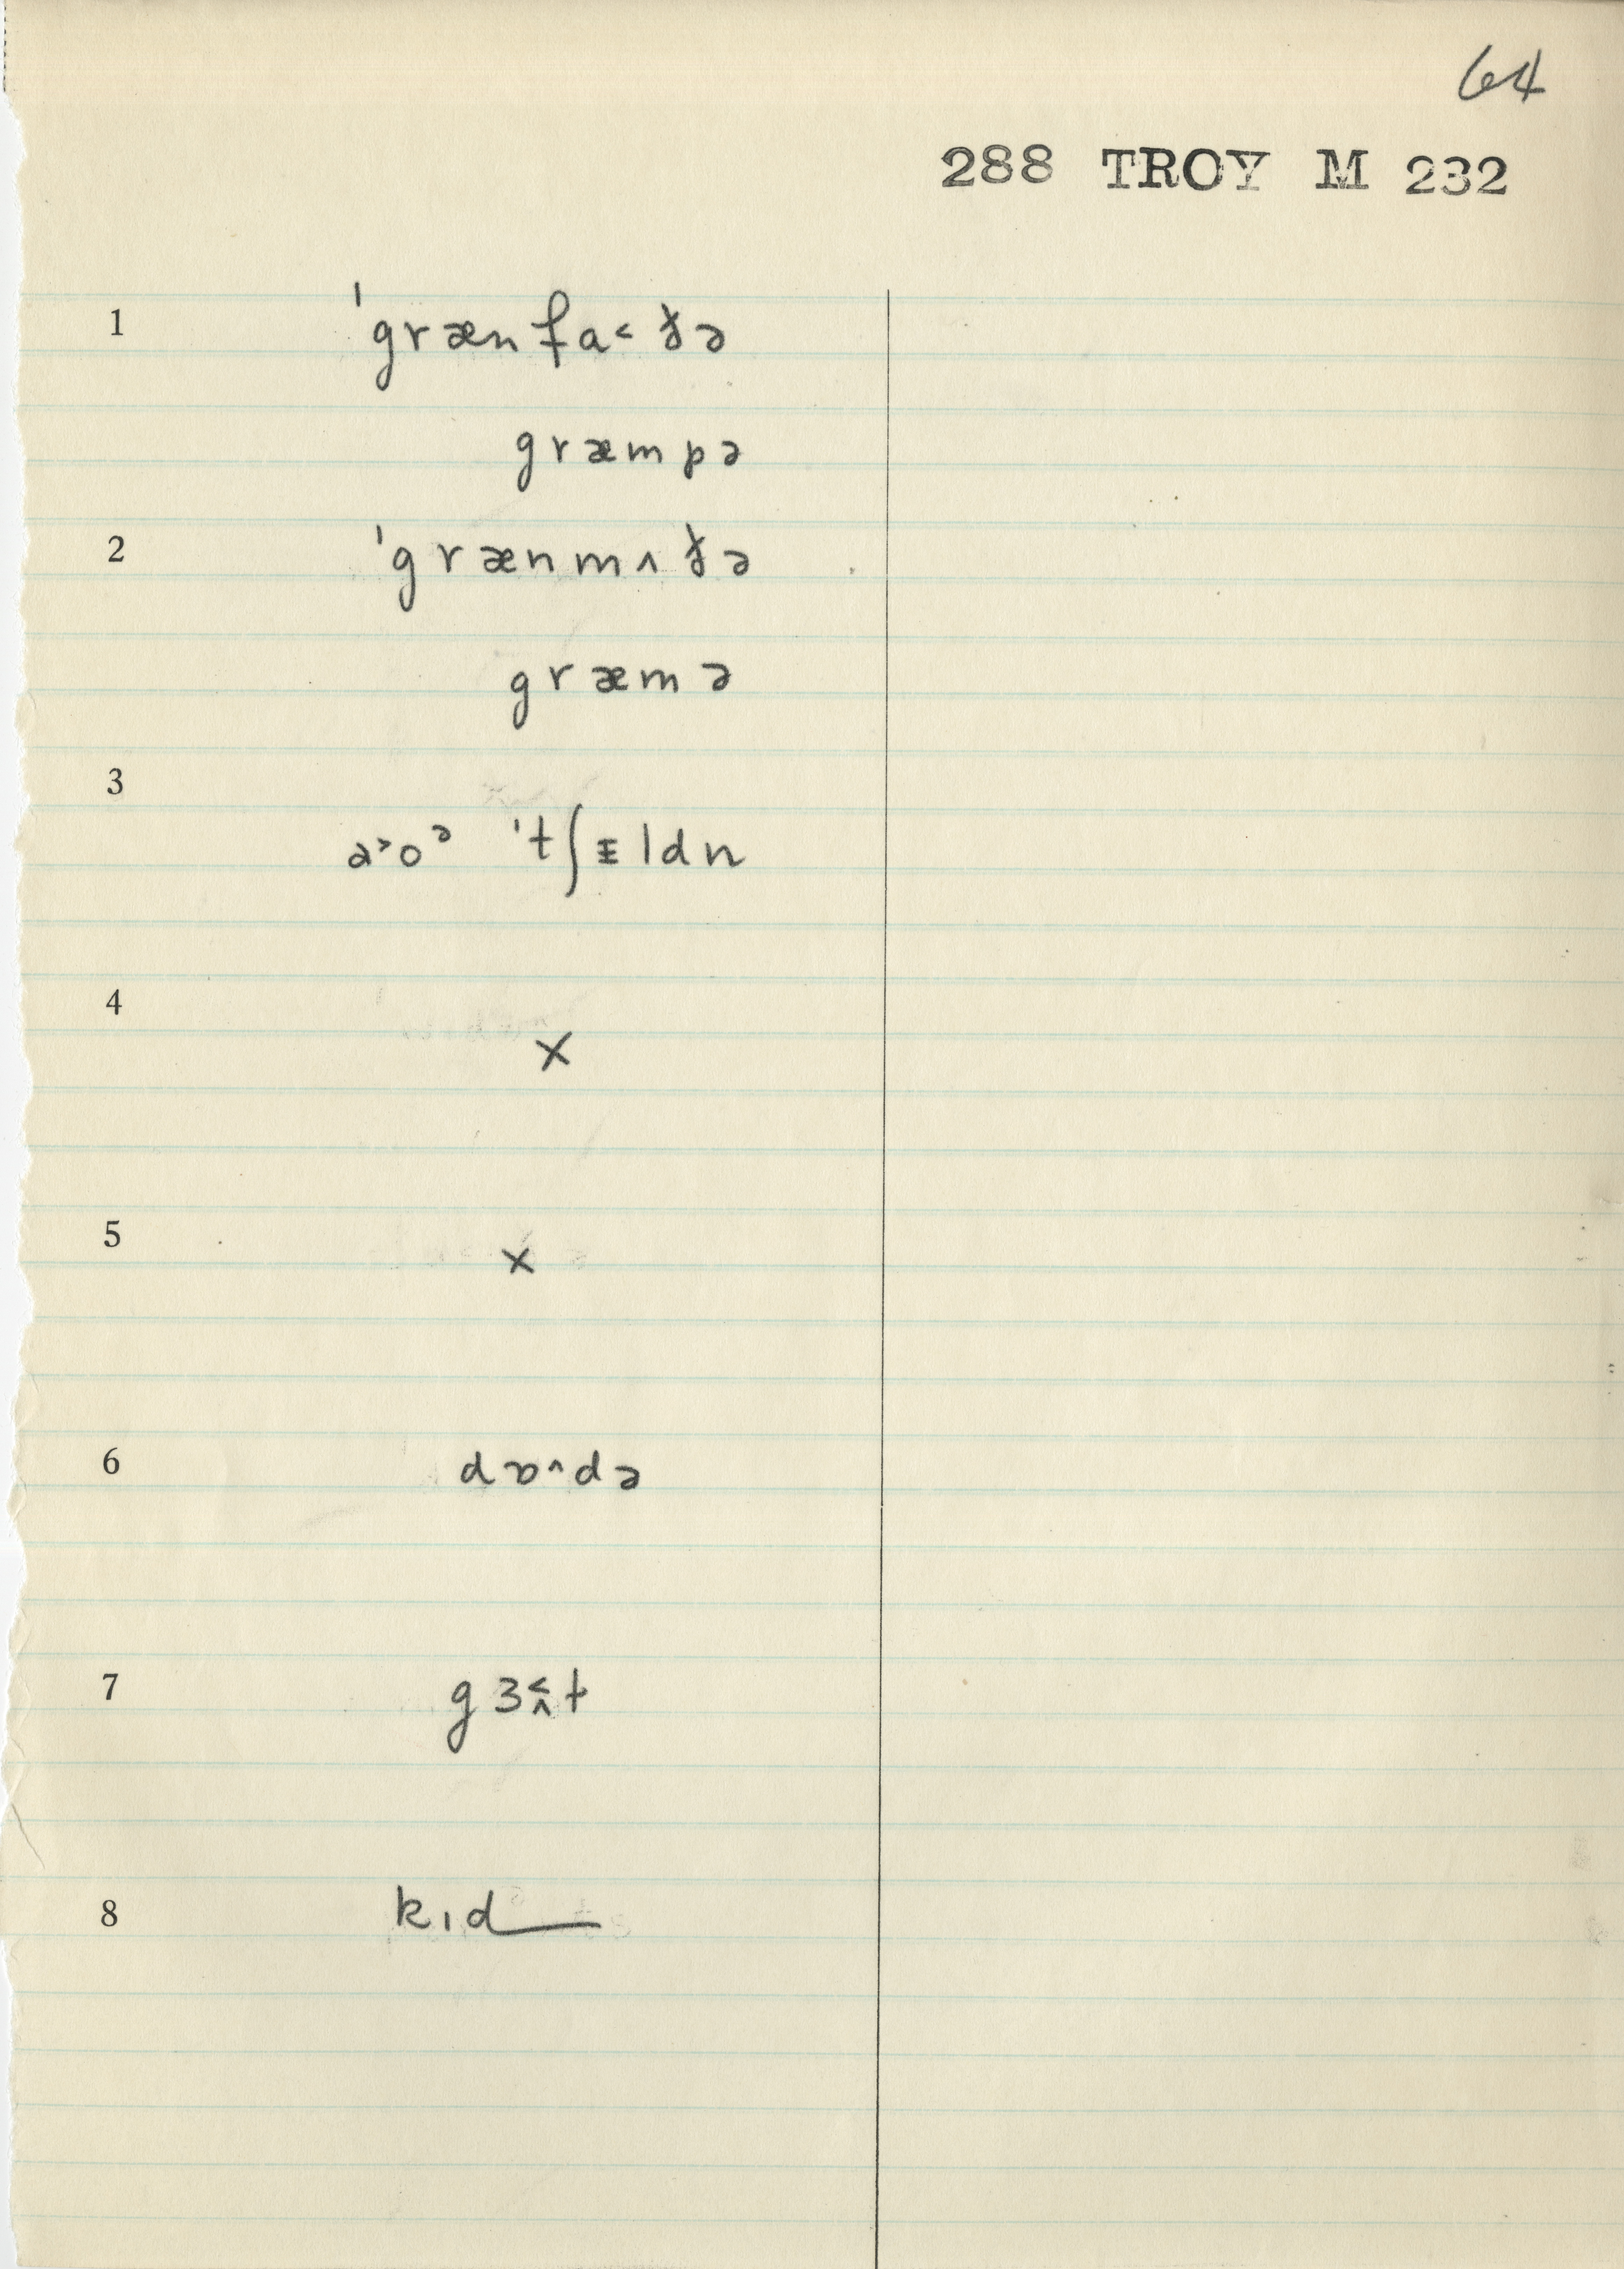 64
288 TROY M 232
1 ˈgrænfa˂ðə
græmpə
2 ˈgrænmʌðə
græmə
3
a˃oᵊ ˈtʃɪldn
4 x
5 x
6 dɒ^də
7 gɜ˂^t
8 kɪd